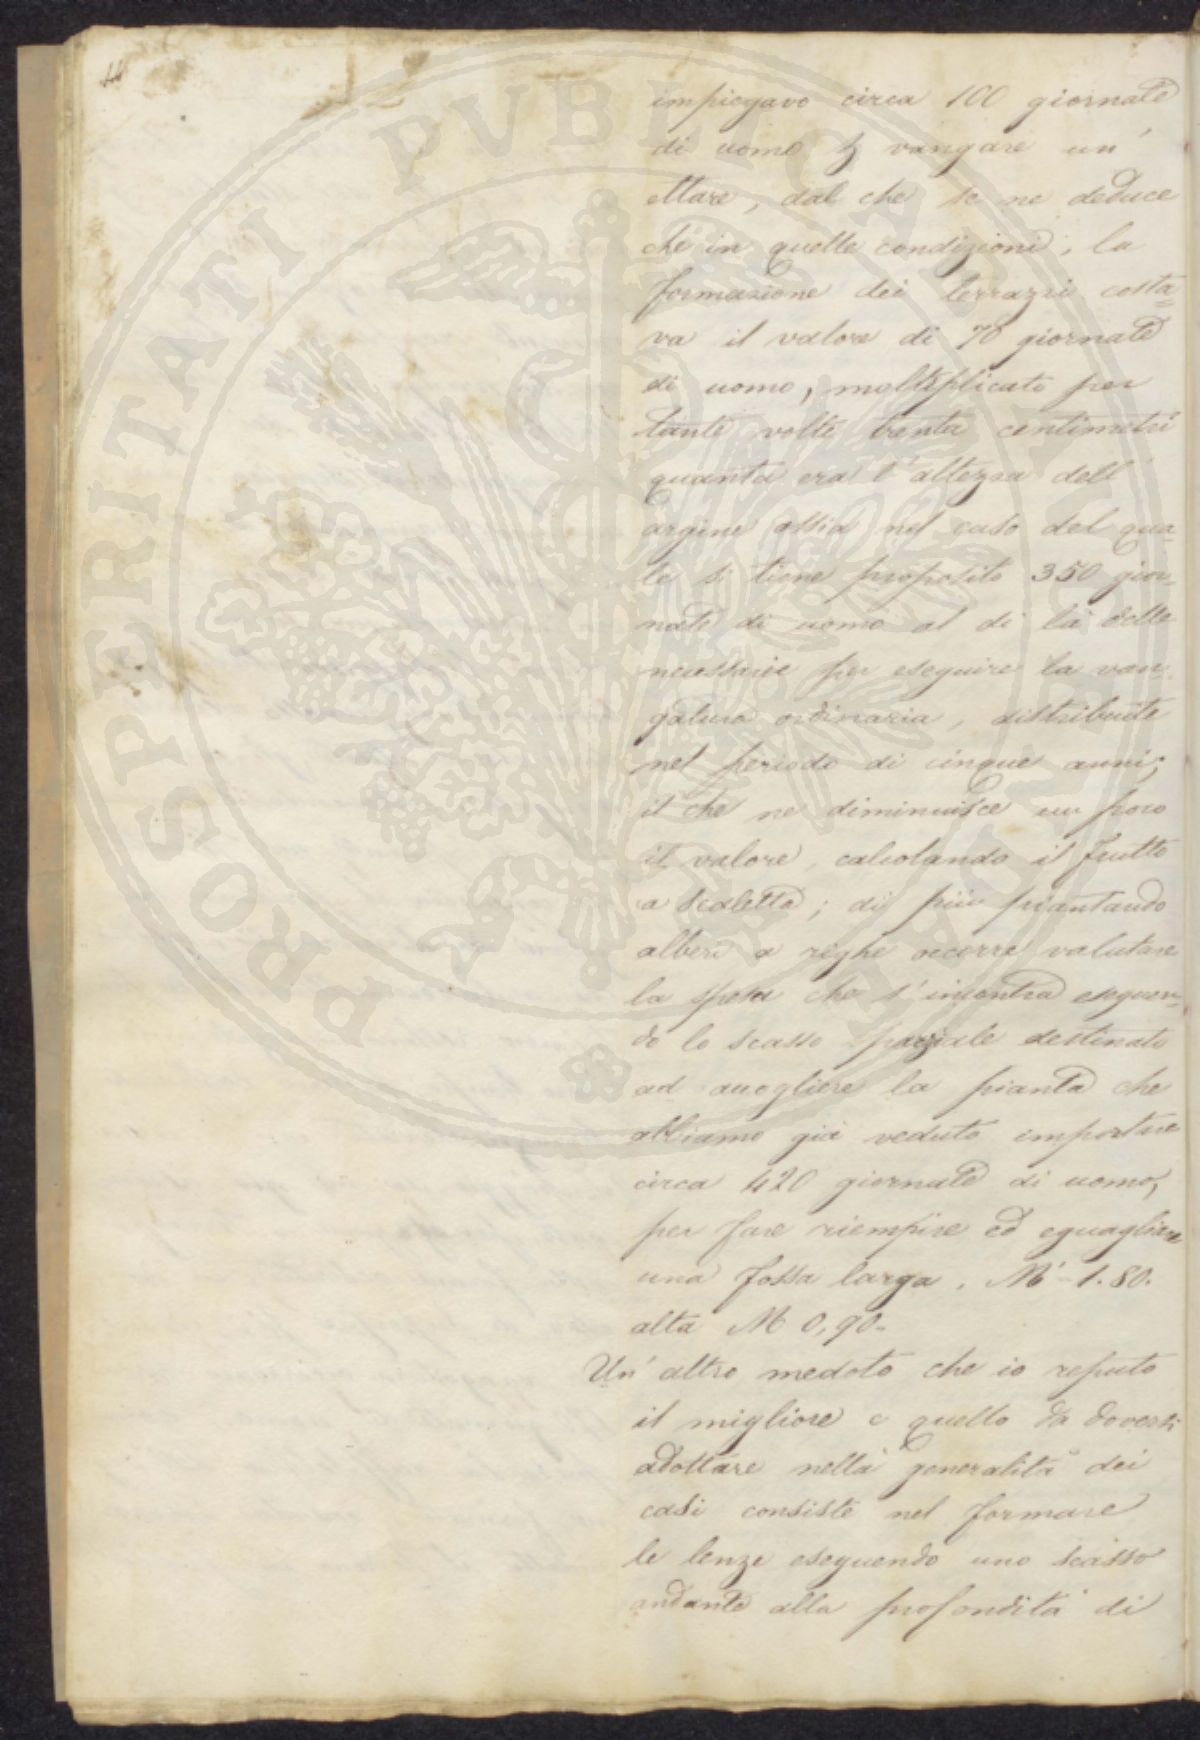 impiegavo circa 100 giornate
di uomo p vangare un'
ettare, dal che se ne deduce
che in quelle condizioni, la
formazione dei terrazzi costa=
va il valore di 70 giornate
di uomo, molteplicato per
tante volte trenta centimetri
quanta era l'altezza dell'
argine ossia nel caso del qua=
le si tiene proposito 350 gior=
nate di uomo al di là delle
necessarie per eseguire la van=
gatura ordinaria, distribuite
nel periodo di cinque anni;
il che ne diminuisce un poco
il valore, calcolando il frutto
a scaletta; di più piantando
alberi a righe occorre valutare
la spesa che s'incontra eseguen=
do lo scasso parziale destinato
ad accogliere la pianta che
abbiamo già veduto importare
circa 420 giornate di uomo,
per fare riempire ed eguagliare
una fossa larga. M 1.80.
alta M 0,90.
Un'altro medoto che io reputo
il migliore e quello da doversi
adottare nella generalità dei
casi consiste nel formare
le lenze eseguendo uno scasso
andante alla profondità di
PROSPERITATI PVBLICAE AVGENDAE